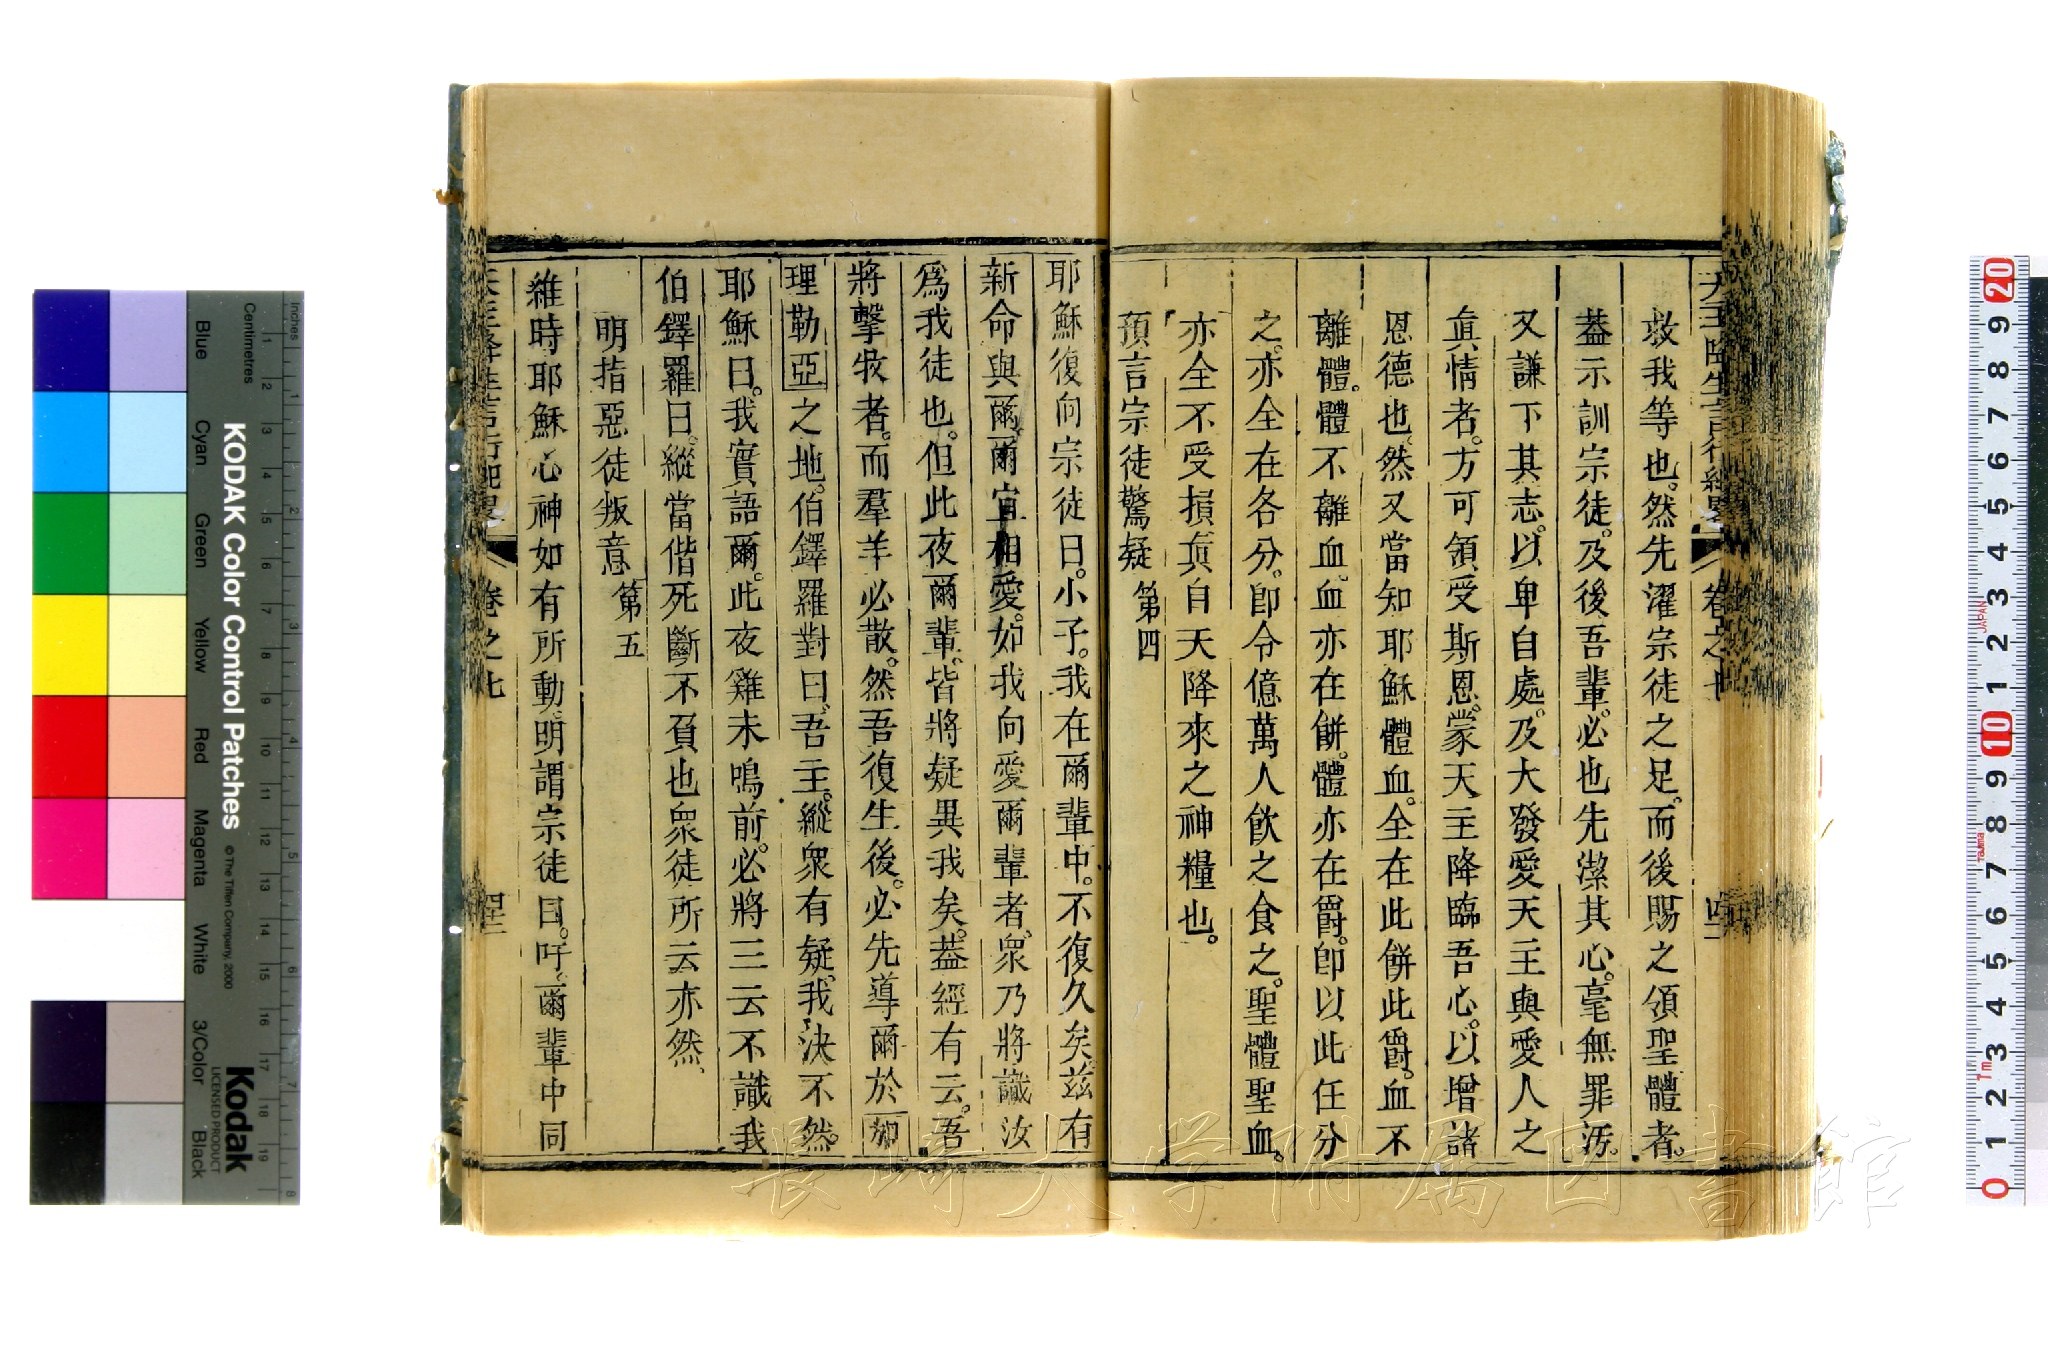 天主降生言行紀畧 卷之七 四二
救我等也。然先濯宗徒之足。而後賜之領聖體者。
葢示訓宗徒。及後吾輩。必也先潔其心。毫無罪汚。
又謙下其志。以卑自處。及大發愛天主與愛人之
眞情者。方可領受斯恩。蒙天主降臨吾心。以增諸
恩德也。然又當知耶穌體血。全在此餅此爵。血不
離體。體不離血。血亦在餅。體亦在爵。卽以此任分
之。亦全在各分。卽令億萬人飮之食之。聖體聖血。
亦全不受損。眞自天降來之神糧也。
預言宗徒驚疑 第四
耶穌復向宗徒曰。小子。我在爾輩中。不復久矣。兹有
新命與爾。爾宜相愛。如我向愛爾輩者。衆乃將識汝
爲我徒也。但此夜爾輩。皆將疑異我矣。葢經有云。吾
將擊牧者。而羣羊必散。然吾復生後。必先導爾於加
理勒亞之地。伯鐸羅對曰。吾主。縱衆有疑。我決不然。
耶穌曰。我實語爾。此夜雞未鳴前。必將三云不識我
伯鐸羅曰。縱當偕死斷不負也衆徒所云亦然、
明指惡徒叛意 第五
維時耶穌心神如有所動。明謂宗徒曰。吁。爾輩中同
天主降生言行紀畧 卷之七 四三
KODAK Color Control Patches
© The Tiffen Company, 2000
Kodak
LICENSED PRODUCT
Inches
Centimetres
Blue
Cyan
Green
Yellow
Red
Magenta
White
3/Color
Black
JAPAN
Tajima
長崎大学附属図書館